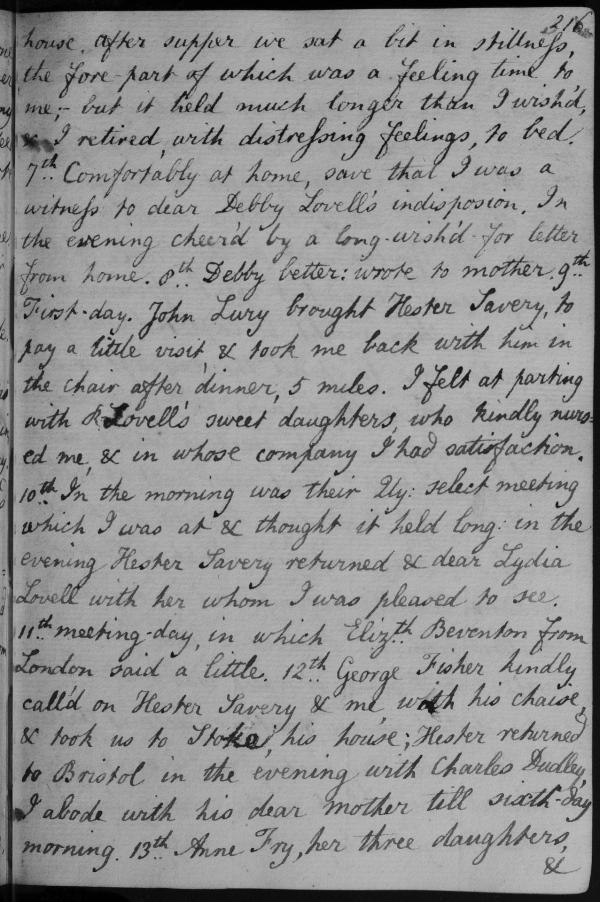 216
house, after supper we sat a bit in stillness,
the fore-part of which was a feeling time to
me;- but it held much longer than I wish'd,
& I retired, with distressing feelings, to bed.
7th Comfortably at home, save that I was a
witness to dear Debby Lovell's indisposion. In
the evening cheer'd by a long-wish'd-for letter
from home. 8th Debby better: wrote to mother. 9th
First-day. John Lury brought Hester Savery, to
pay a little visit & took me back with him in
the chair after dinner, 5 miles. I felt at parting
with R Lovell's sweet daughters, who kindly nurs=
ed me, & in whose company I had satisfaction.
10th In the morning was their Qly: select meeting
which I was at & thought it held long: in the
evening Hester Savery returned & dear Lydia
Lovell with her whom I was pleased to see.
11th meeting-day, in which Elizth Beventon from
London said a little. 12th George Fisher kindly
call'd on Hester Savery & me, with his chaise,
& took us to Stoke, his house; Hester returned
to Bristol in the evening with Charles Dudley,
I abode with his dear mother till sixth-day
morning. 13th Anne Fry, her three daughters,
&